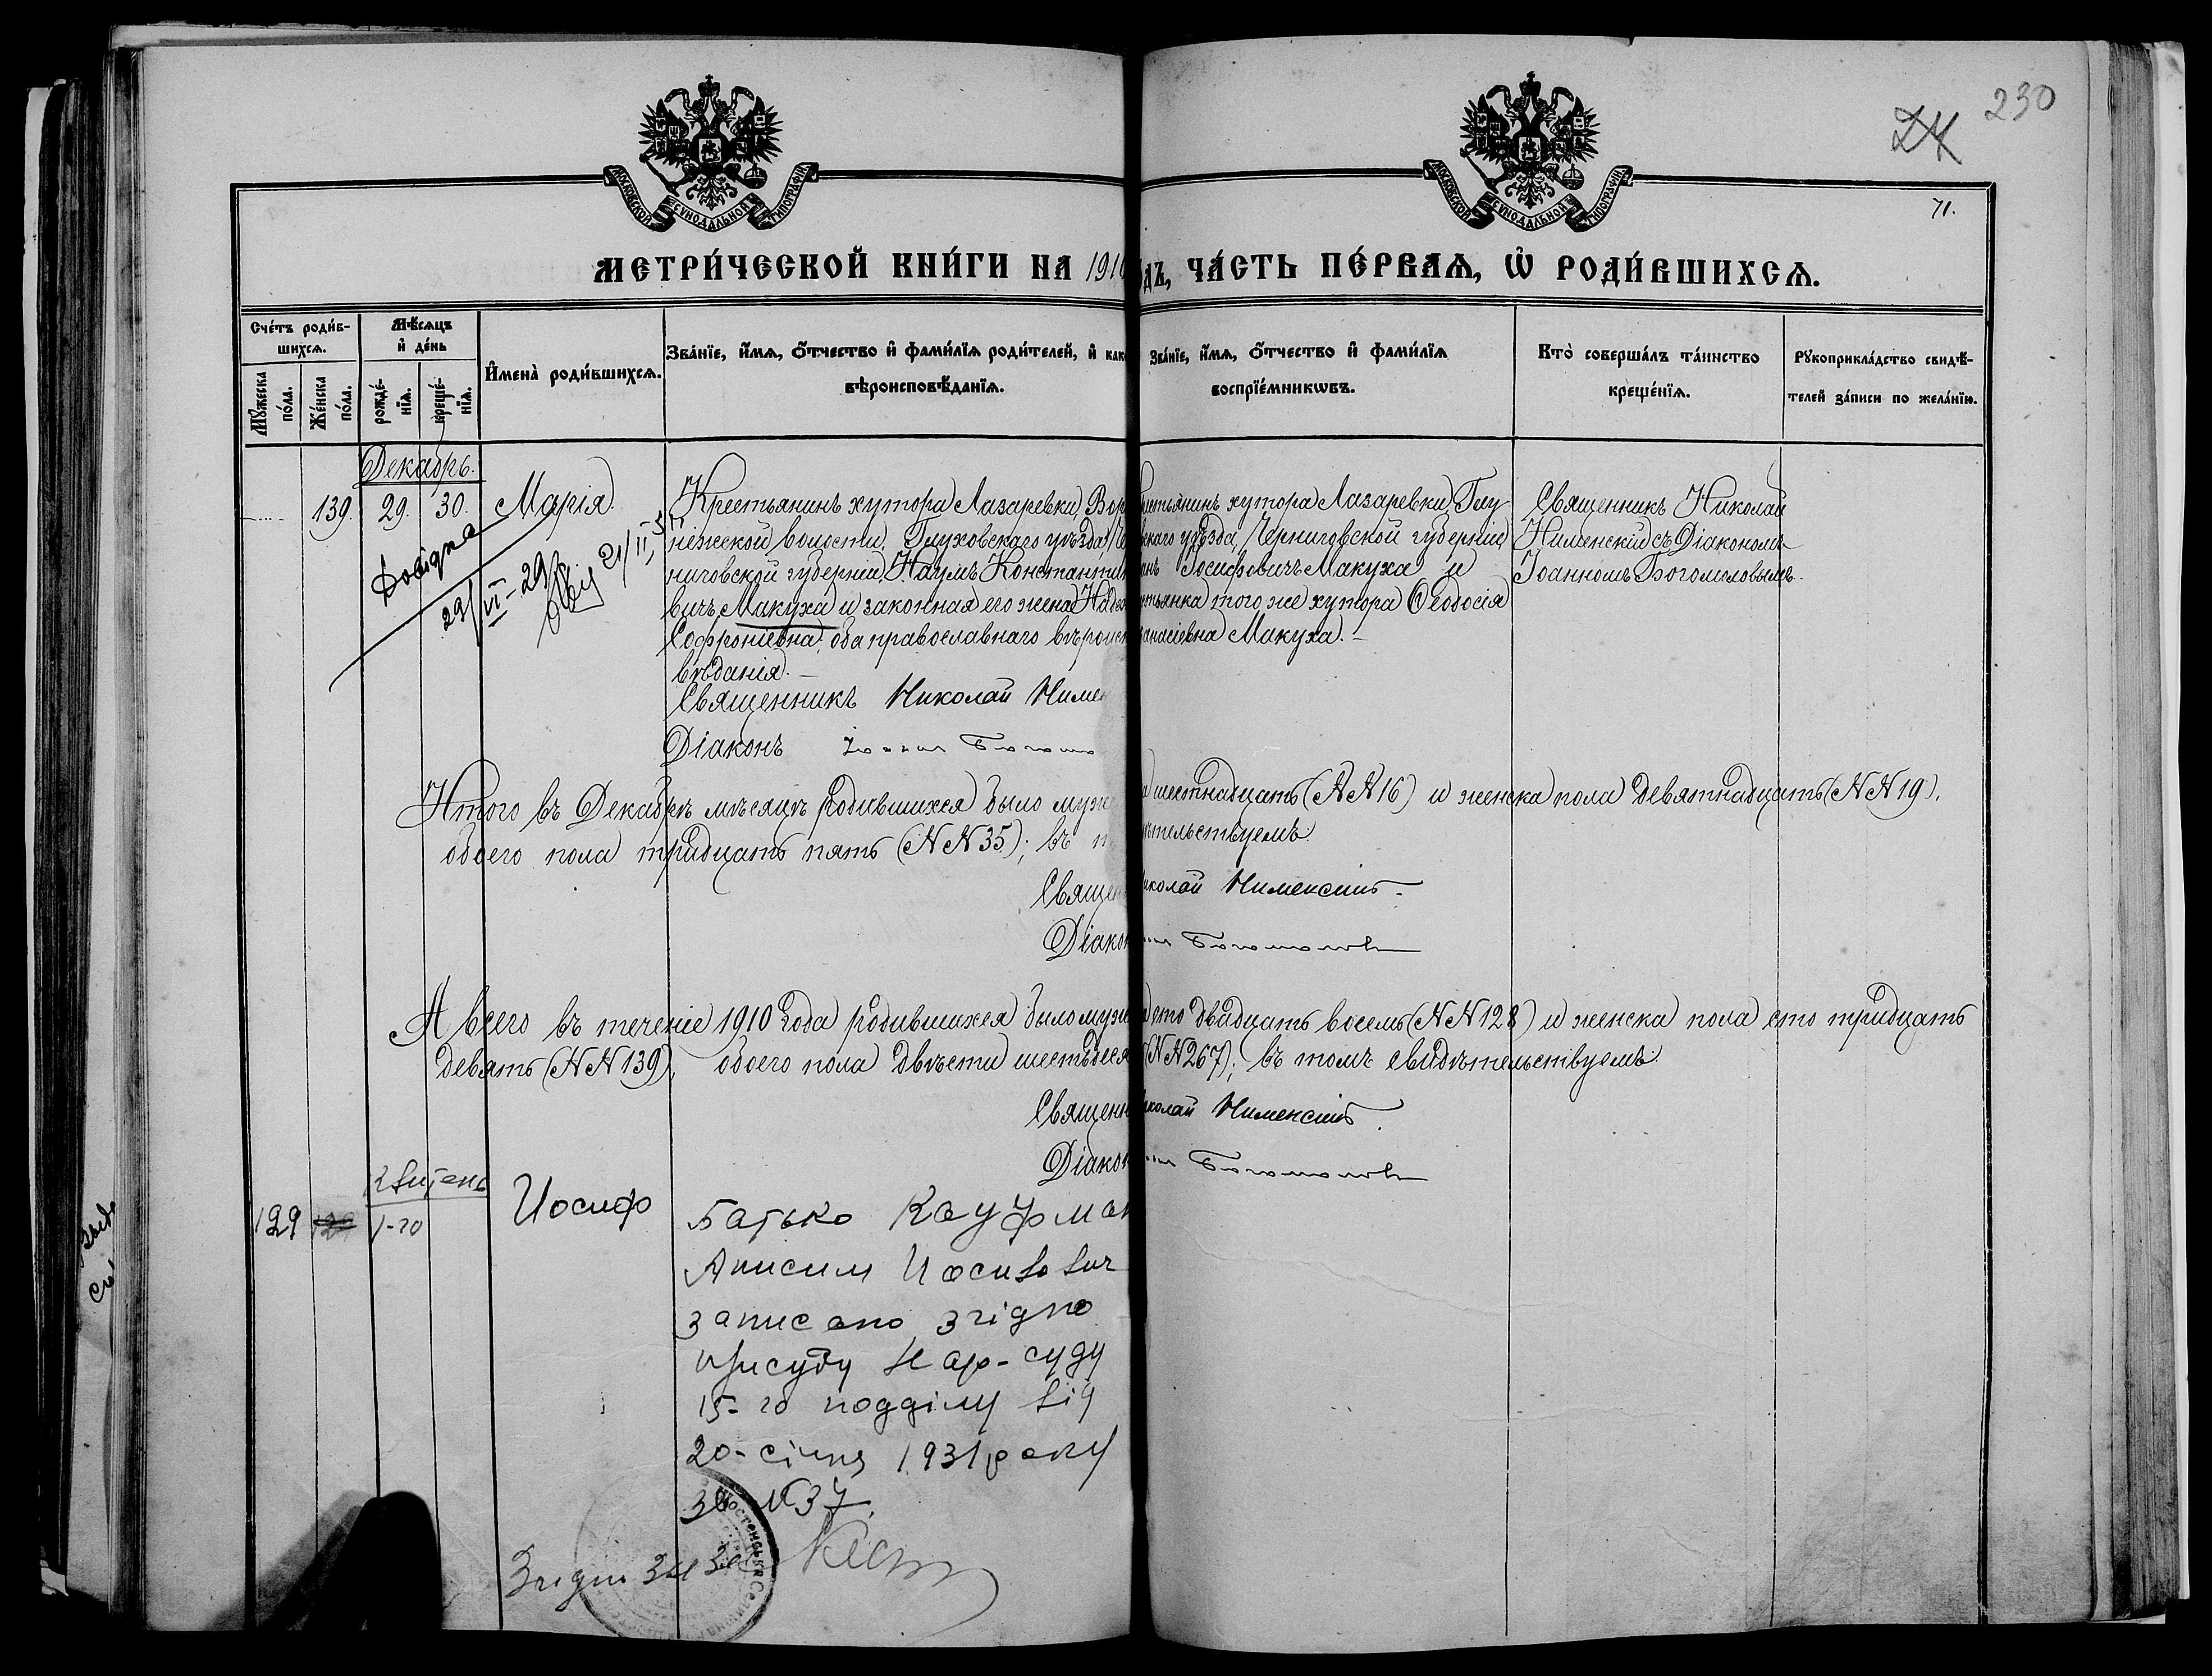 230
71.
МОСКОВСКОЙ СѴНОДАЛЬНОЙ ТИПОГРАФІИ
МОСКОВСКОЙ СѴНОДАЛЬНОЙ ТИПОГРАФІИ
МЕТРИ́ЧЕСКОЙ КНИ́ГИ НА 1910
ДЪ, ЧА́СТЬ ПЕ́РВАЯ, Ѡ РОДИ́ВШИХСЯ.
Сче́тъ роди́в-
шихся.
Мѣ́сяцъ
и де́нь
Му́жеска
по́ла.
Же́нска
по́ла.
рожде́-
нїя.
креще́-
нїя.
И҆мена̀ роди́вшихся.
Зва́нїе, и҆́мя, ѻ҆́тчество и҆ фами́лїя роди́телей, и҆ как
вѣроисповѣ́данїя.
Зва́нїе, и҆́мя, ѻ҆́тчество и҆ фами́лїя
воспрїе́мникѡвъ.
Кто̀ соверша́лъ та́инство
креще́нїя.
Рꙋкоприкла́дство свидѣ́-
телей за́писи по жела́нїю.
Декабрь.
139. 29. 30. Марія.
Крестьянинъ хутора Лазаревки, Вор
нежской волости, Глуховскаго уѣзда, Че
ниговской губерніи, Наумъ Константи
вичъ Макуха и законная его жена Наде
Софроніевна; оба православнаго вѣроис
вѣданія.
Священникъ Николай Нимен
Діаконъ Іоанн Богомо
стьянинъ хутора Лазаревки, Глу
скаго уѣзда, Черниговской губерніи
анъ Іосифовичъ Макуха и
стьянка того же хутора Ѳеодосія
анасіевна Макуха.
Священникъ Николай
Нименскій съ Діакономъ
Іоанномъ Богомоловымъ.
29/VI-29
21/II
Итого въ Декабрѣ мѣсяцѣ родившихся было муже
а шестнадцать (№№16) и женска пола девятнадцать (№№19),
обоего пола тридцать пять (№№35); въ т
ѣтельствуемъ.
Священ
иколай Нименскій
Діакон
нн Богомолов
А всего въ теченіе 1910 года родившихся было муже
сто двадцать восемь (№№128) и женска пола сто тридцать
девять (№№139), обоего пола двѣсти шестьдеся
(№№267); въ томъ свидѣтельствуемъ.
Священн
иколай Нименскій
Діакон
нн Богомолов
Квітень
129 1-го Иосиф
Батько Кауфман
Анисим Иосипович
записано згідно
присуду Нар-суду
15-го подділу від
20-січня 1931 року
за №37